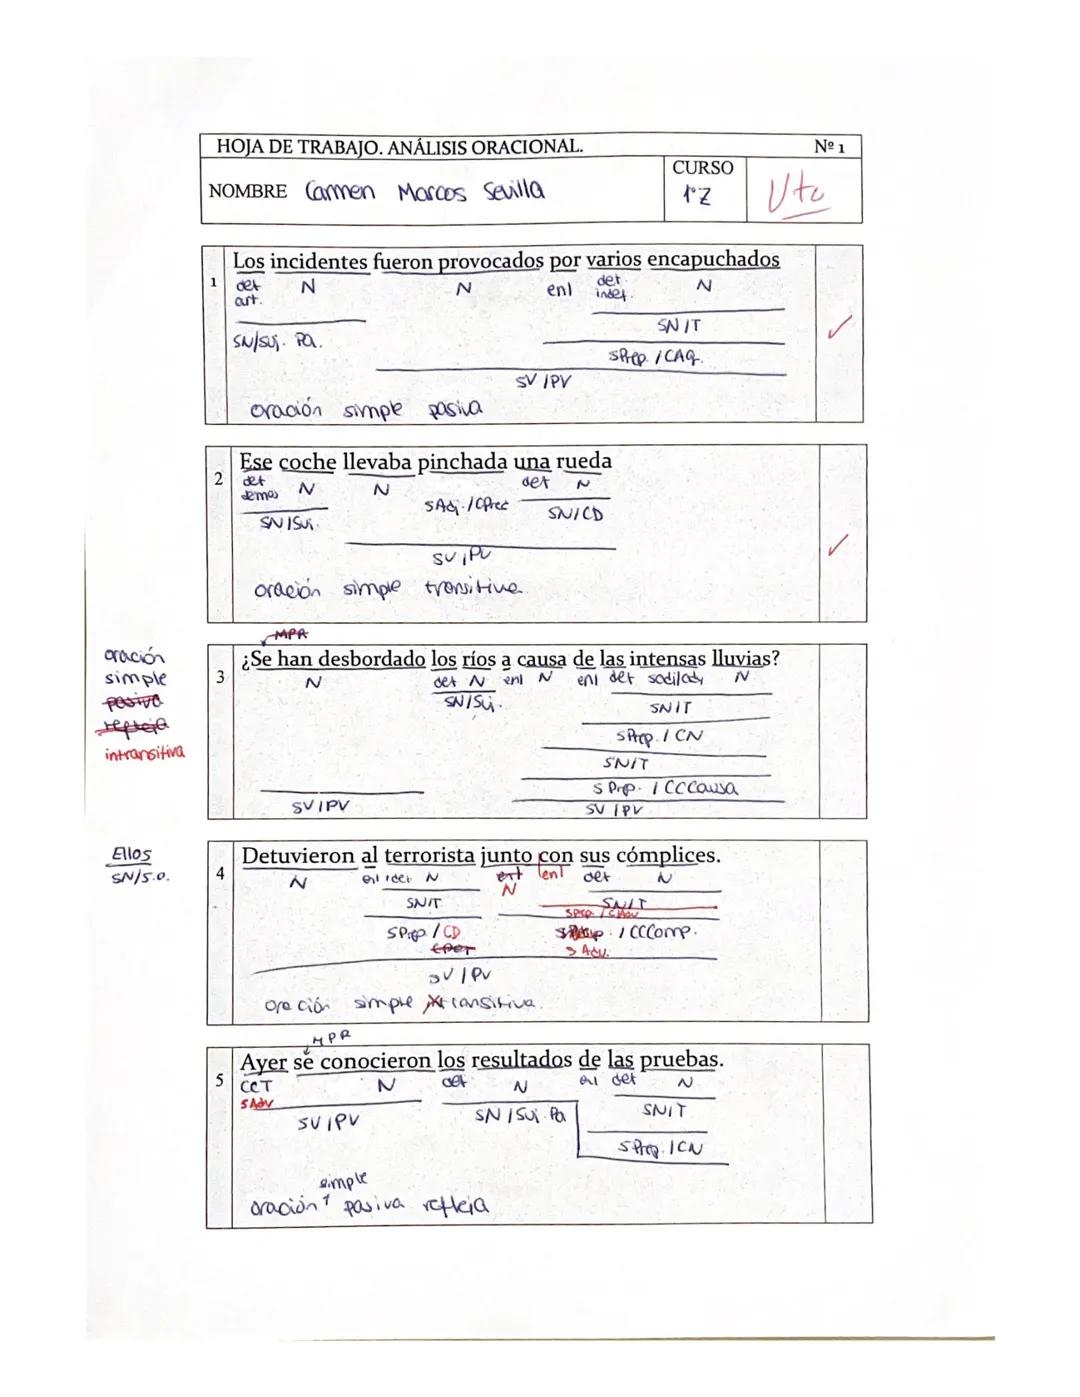 HOJA DE TRABAJO. ANÁLISIS ORACIONAL. Nº 1
NOMBRE Carmen Marcos Sevilla
CURSO
1ºZ
Vto
1 Los incidentes fueron provocados por varios encapuchados
det N N enl det. N
art. indet.
SN/T
SN/Suj. Pa.
SPrep. / CAg.
SV / PV
oración simple pasiva
2 Ese coche llevaba pinchada una rueda
det N N det N
demos
SAdj. / CPred SN/CD
SN/Suj.
SV / PV
oración simple transitiva
MPR
3 ¿Se han desbordado los ríos a causa de las intensas lluvias?
N det N enl N enl det sadj/ady N
SN/Suj. SN/T
SPrep. / CN
SN/T
SPrep. / CCCausa
SV / PV SV / PV
oración
simple
pasiva
refleja
intransitiva
Ellos
SN/S.O.
4 Detuvieron al terrorista junto con sus cómplices.
N enl det N enl enl det N
N
SN/T SN/T
SPrep. / CAdv
SPrep / CD / CCComp.
CPer SAdv.
SV / PV
oración simple transitiva.
MPR
5 Ayer se conocieron los resultados de las pruebas.
CCT N det N enl det N
SAdv
SV / PV SN / Suj. Pa SN/T
SPrep. / CN
simple
oración pasiva refleja